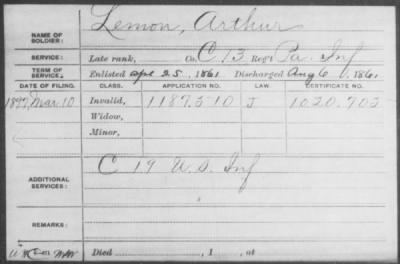 NAME OF SOLDIER: Lemon, Arthur
SERVICE: Late rank, Co. C 13 Reg't Pa. Inf
TERM OF SERVICE: Enlisted Apl 25, 1861 Discharged Aug 6, 1861
DATE OF FILING. CLASS. APPLICATION NO. LAW. CERTIFICATE NO.
1897 Mar 10 Invalid, 1187510 J 1020.702
Widow,
Minor,
ADDITIONAL SERVICES: C 19 U.S. Inf
REMARKS:
Died , 1 , at